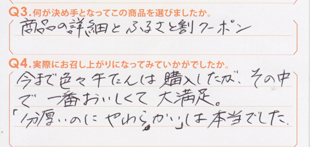 Q3. 何が決め手となってこの商品を選びましたか。
商品の詳細とふるさと割クーポン
Q4. 実際にお召し上がりになってみていかがでしたか。
今まで色々牛たんは購入したが、その中
で一番おいしくて大満足。
「分厚いのにやわらかい」は本当でした。